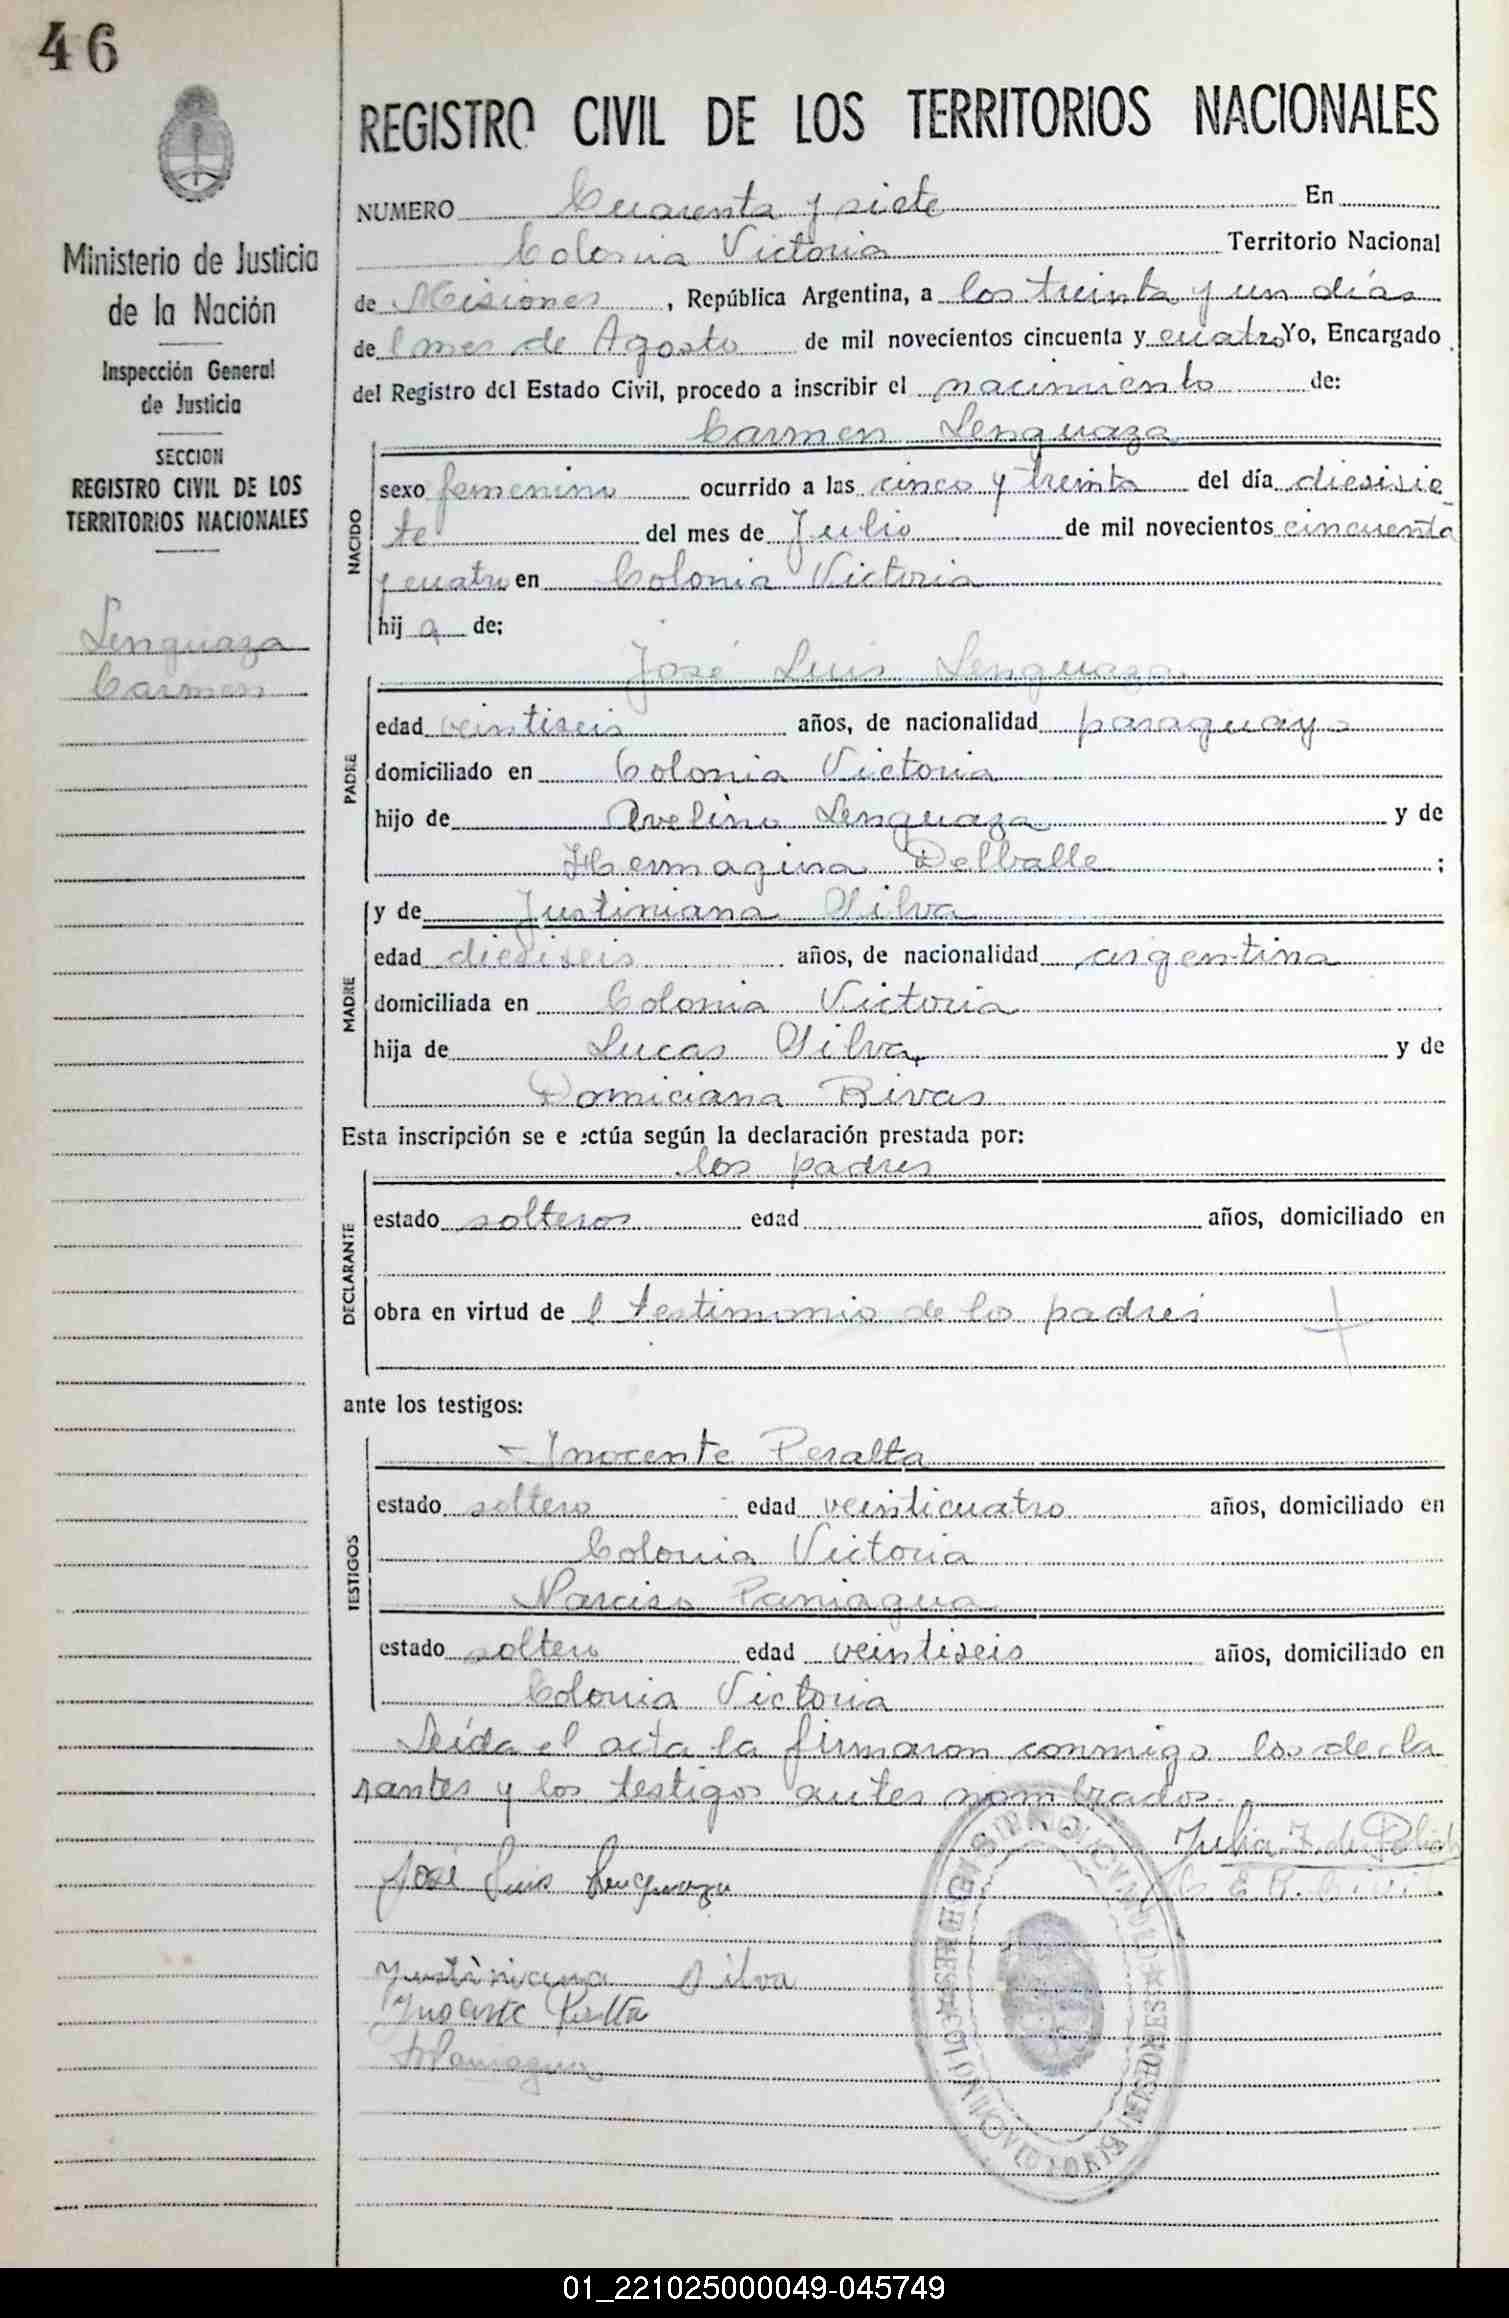 46
Ministerio de Justicia
de la Nación
Inspección General
de Justicia
SECCION
REGISTRO CIVIL DE LOS
TERRITORIOS NACIONALES
Lenguaza
Carmen
REGISTRO CIVIL DE LOS TERRITORIOS NACIONALES
NUMERO Cuarenta y siete En
Colonia Victoria Territorio Nacional
de Misiones, República Argentina, a los treinta y un días
del mes de Agosto de mil novecientos cincuenta y cuatro Yo, Encargado
del Registro del Estado Civil, procedo a inscribir el nacimiento de:
Carmen Lenguaza
NACIDO
sexo femenino ocurrido a las cinco y treinta del día diesisie
te del mes de Julio de mil novecientos cincuenta
y cuatro en Colonia Victoria
hija de:
José Luis Lenguaza
PADRE
edad veintiseis años, de nacionalidad paraguayo
domiciliado en Colonia Victoria
hijo de Avelino Lenguaza y de
Hermagina Delballe ;
y de Justiniana Silva
MADRE
edad diesiseis años, de nacionalidad argentina
domiciliada en Colonia Victoria
hija de Lucas Silva y de
Domiciana Rivas
Esta inscripción se e ectúa según la declaración prestada por:
los padres
DECLARANTE
estado solteros edad años, domiciliado en
obra en virtud del testimonio de lo padres
ante los testigos:
Inocente Peralta
TESTIGOS
estado soltero edad veinticuatro años, domiciliado en
Colonia Victoria
Narciso Paniagua
estado soltero edad veintiseis años, domiciliado en
Colonia Victoria
Leída el acta la firmaron conmigo los decla
rantes y los testigos antes nombrados.
Julia
José Luis Lenguaza
E. R. Civil
Justiniana Silva
Inocente Peralta
Paniagua
01_221025000049-045749